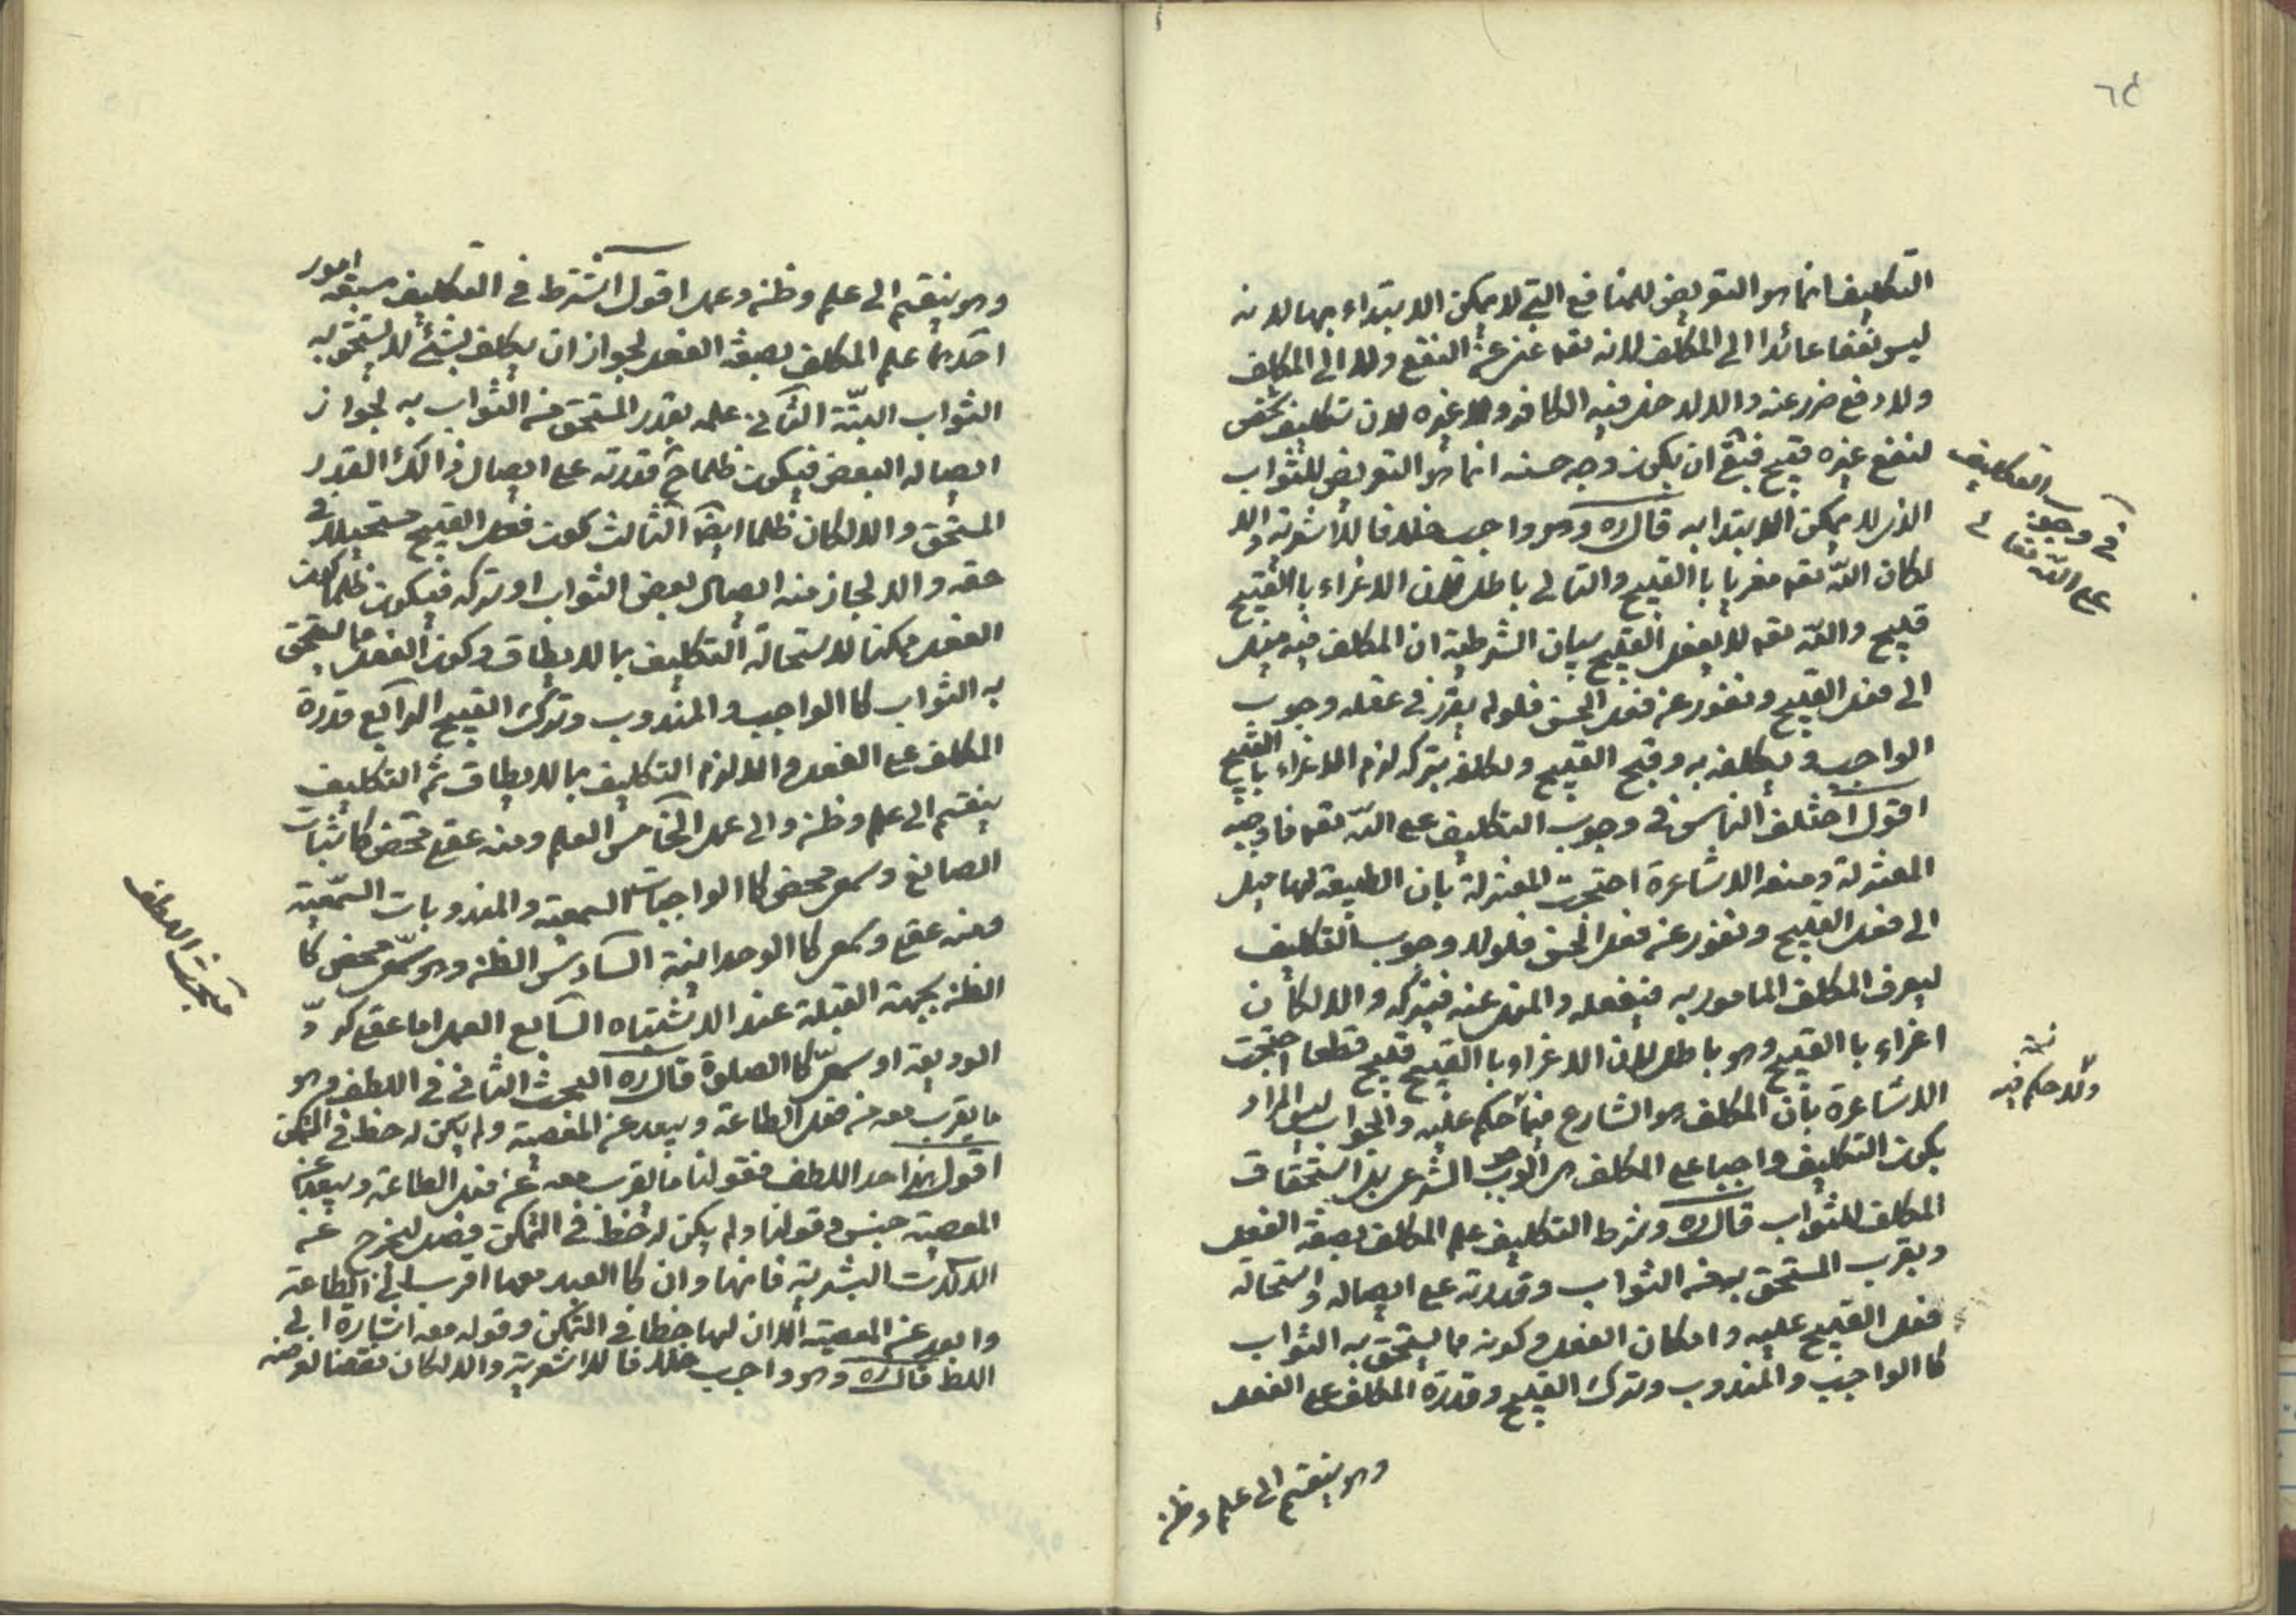 ٦٤
التكليف انما هو التعويض للمنافع التي لا يمكن الابتداء بها لانه
ليس نفعا عائدا الى المكلف لانه تعه غنى عن النفع ولا الى المكلف
ولا دفع ضرر عنه والا لدخل فيه الكافر ولا غيره لان تكليف شخص
لنفع غيره قبيح فبقى ان يكون وجه حسنه انما هو التعويض للثواب
الذى لا يمكن الابتدا به قال ره وهو واجب خلافا للاشعرية والا
لكان الله تعه مغريا باالقبيح والتالى باطل لان الاغراء باالقبيح
قبيح والله تعه لا يفعل القبيح بيان الشرطية ان المكلف فيه ميل
الى فعل القبيح ونفور عن فعل الحسن فلو لم يقرر في عقله وجوب
الواجب ويكلف به وقبح القبيح ويكلفه بتركه لزم الاغراء باالقبيح
اقول اختلف الناس في وجوب التكليف على الله تعه فاوجبه
المعتزلة ومنعه الاشاعرة احتجت المعتزلة بان الطبيعة لها ميل
الى فعل القبيح ونفور عن فعل الحسن فلولا وجوب التكليف
ليعرف المكلف المامور به فيفعله والمنهى عنه فيتركه والا لكان
اغراء باالقبيح وهو باطل لان الاغراء باالقبيح قبيح قطعا احتجت
الاشاعرة بان المكلف هو الشارع فيما حكم عليه والجواب ليس المراد
بكون التكليف واجبا على المكلف هو الوجوب الشرعى بل استحقاق
المكلف للثواب قال ره وشرط التكليف علم المكلف بصفة الفعل
وبقرب المستحق به من الثواب وقدرته على ايصاله واستحالة
فعل القبيح عليه وامكان الفعل وكونه مما يستحق به الثواب
كا الواجب والمندوب وترك القبيح وقدرة المكلف على الفعل
وهو ينقسم الى علم وظن
في وجوب التكليف
على الله تعالى
ولا حكم فيه
وهو ينقسم الى علم وظن وعمل اقول يشترط في التكليف سبعة امور
احدها علم المكلف بصفة الفعل لجواز ان يكلف بشئ لا يستحق به
الثواب البتة الثانى علمه بقدر المستحق من الثواب به لجواز
ايصاله البعض فيكون ظلما ح قدرته على ايصال ذالك القدر
المستحق والا لكان ظلما ايضا الثالث كون فعل القبيح مستحيلا في
حقه والا لجاز منه ايصال بعض الثواب او تركه فيكون ظلما كون
الفعل ممكنا لاستحالة التكليف بما لا يطاق وكون الفعل مما يستحق
به الثواب كا الواجب والمندوب وترك القبيح الرابع قدرة
المكلف على الفعل والا لزم التكليف بما لا يطاق ثم التكليف
ينقسم الى علم وظن والى عمل الخامس العلم ومنه عقلى محض كاثبات
الصانع وسمعى محض كا الواجبات السمعية والمندوبات السمعية
ومنه عقلى وسمعى كا الوحدانية السادس الظن وهو سمعى محض كا
الظن بجهة القبلة عند الاشتباه السابع العمل اما عقلى كرد
الوديعة او سمعى كا الصلوة قال ره البحث الثانى في اللطف وهو
ما يقرب معه من فعل الطاعة ويبعد عن المعصية ولم يكن له حظ في التمكن
اقول هذا حد اللطف فقولنا ما يقرب معه من فعل الطاعة ويبعد عن
المعصية جنس وقولنا ولم يكن له حظ في التمكن فصل ليخرج عنه
الالات البشرية فانها وان كا العبد معها اقرب الى الطاعة
وابعد عن المعصية الا ان لها حظا في التمكن وقوله معه اشارة الى
اللط قال ره وهو واجب خلافا للاشعرية والا لكان نقضا لغرضه
مبحث اللطف